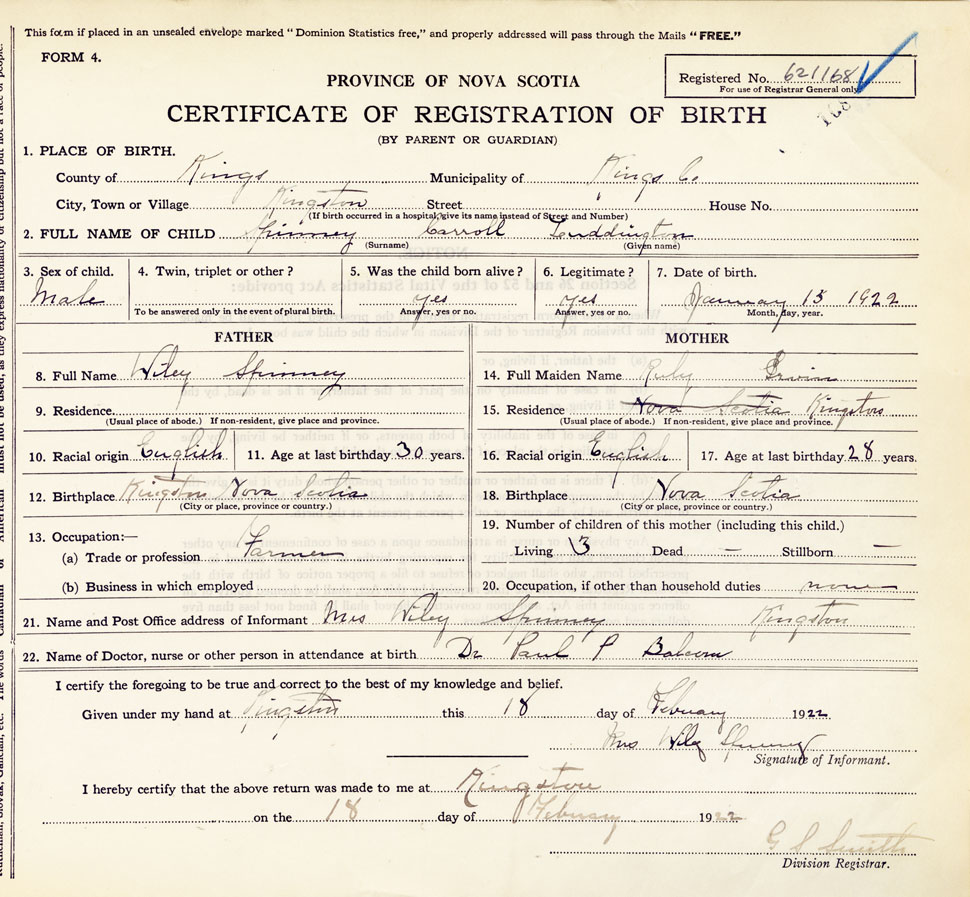 This form if placed in an unsealed envelope marked "Dominion Statistics free," and properly addressed will pass through the Mails "FREE."
FORM 4.
PROVINCE OF NOVA SCOTIA
Registered No. 621168
For use of Registrar General only
CERTIFICATE OF REGISTRATION OF BIRTH
(BY PARENT OR GUARDIAN)
1. PLACE OF BIRTH.
County of Kings Municipality of Kings Co.
City, Town or Village Kingston Street House No.
(If birth occurred in a hospital, give its name instead of Street and Number)
2. FULL NAME OF CHILD Spinney Carroll Luddington
(Surname) (Given name)
3. Sex of child. 4. Twin, triplet or other? 5. Was the child born alive? 6. Legitimate? 7. Date of birth.
Male yes yes January 15 1922
To be answered only in the event of plural birth. Answer, yes or no. Answer, yes or no. Month, day, year.
FATHER MOTHER
8. Full Name Wiley Spinney 14. Full Maiden Name Ruby
9. Residence. 15. Residence Nova Scotia Kingston
(Usual place of abode.) If non-resident, give place and province. (Usual place of abode.) If non-resident, give place and province.
10. Racial origin English 11. Age at last birthday 30 years. 16. Racial origin English 17. Age at last birthday 28 years.
12. Birthplace Kingston Nova Scotia 18. Birthplace Nova Scotia
(City or place, province or country.) (City or place, province or country.)
13. Occupation:— 19. Number of children of this mother (including this child.)
(a) Trade or profession Farmer Living 3 Dead — Stillborn —
(b) Business in which employed 20. Occupation, if other than household duties none
21. Name and Post Office address of Informant Mrs Wiley Spinney Kingston
22. Name of Doctor, nurse or other person in attendance at birth Dr Paul P Balcom
I certify the foregoing to be true and correct to the best of my knowledge and belief.
Given under my hand at Kingston this 18 day of February 1922.
Mrs Wiley Spinney
Signature of Informant.
I hereby certify that the above return was made to me at Kingston
on the 18 day of February 1922
G S Smith
Division Registrar.